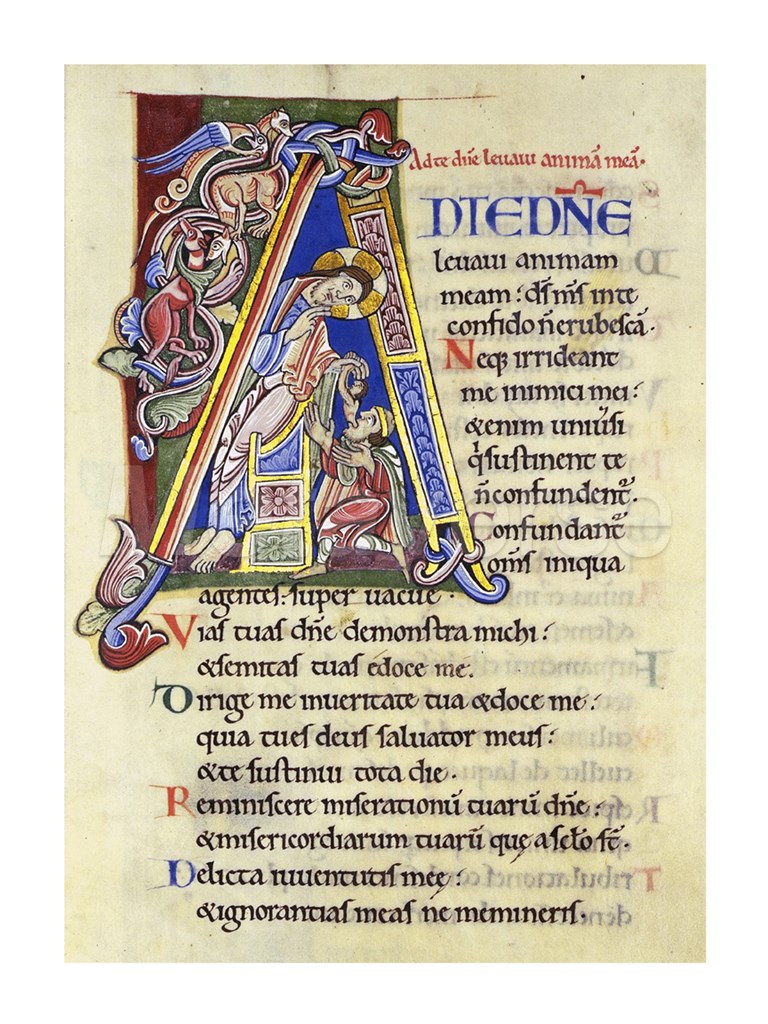 Ad te dn̄e levaui animā meā.
AD TE DN̄E
leuaui animam
meam: dſ mſ in te
confido n̄ erubeſcā.
Neqꝫ irrideant
me inimici mei:
&enim uniūſi
q̇ ſuſtinent te
n̄ confundent᷑.
Confundant᷑
om̄ſ iniqua
agenteſ: ſuper uacue.
Viaſ tuaſ dn̄e demonſtra michi:
&ſemitaſ tuaſ edoce me.
Dirige me inueritate tua &doce me:
quia tu eſ deuſ ſaluator meuſ:
&te ſuſtinui tota die.
Reminiſcere miſerationū tuarū dn̄e:
&miſericordiarum tuarū que a ſeło ſt̄.
Delicta iuuentutiſ meę:
&ignorantiaſ meaſ ne meminerif.